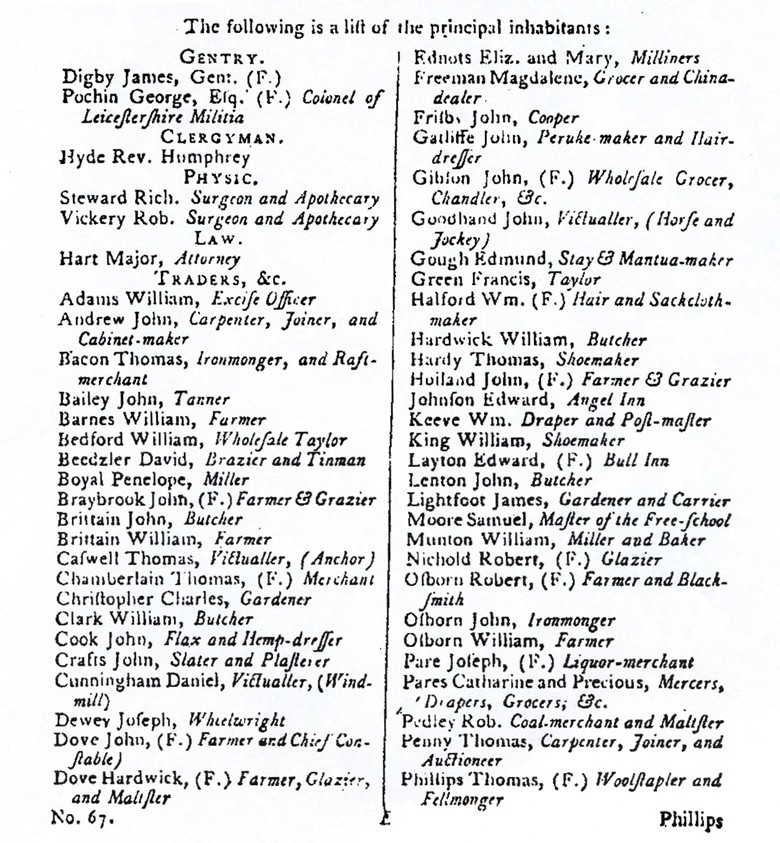 The following is a liſt of the principal inhabitants:
GENTRY.
Digby James, Gent. (F.)
Pochin George, Eſq. (F.) Colonel of
Leiceſterſhire Militia
CLERGYMAN.
Hyde Rev. Humphrey
PHYSIC.
Steward Rich. Surgeon and Apothecary
Vickery Rob. Surgeon and Apothecary
LAW.
Hart Major, Attorney
TRADERS, &c.
Adams William, Exciſe Officer
Andrew John, Carpenter, Joiner, and
Cabinet-maker
Bacon Thomas, Ironmonger, and Raft-
merchant
Bailey John, Tanner
Barnes William, Farmer
Bedford William, Wholeſale Taylor
Beedzler David, Brazier and Tinman
Boyal Penelope, Miller
Braybrook John, (F.) Farmer & Grazier
Brittain John, Butcher
Brittain William, Farmer
Caſwell Thomas, Victualler, (Anchor)
Chamberlain Thomas, (F.) Merchant
Chriſtopher Charles, Gardener
Clark William, Butcher
Cook John, Flax and Hemp-dreſſer
Crafts John, Slater and Plaſterer
Cunningham Daniel, Victualler, (Wind-
mill)
Dewey Joſeph, Wheelwright
Dove John, (F.) Farmer and Chief Con-
ſtable)
Dove Hardwick, (F.) Farmer, Glazier,
and Maltſter
No. 67.
Ednots Eliz. and Mary, Milliners
Freeman Magdalene, Grocer and China-
dealer
Friſby John, Cooper
Gatliffe John, Peruke-maker and Hair-
dreſſer
Gibſon John, (F.) Wholeſale Grocer,
Chandler, &c.
Goodhand John, Victualler, (Horſe and
Jockey)
Gough Edmund, Stay & Mantua-maker
Green Francis, Taylor
Halford Wm. (F.) Hair and Sackcloth-
maker
Hardwick William, Butcher
Hardy Thomas, Shoemaker
Holland John, (F.) Farmer & Grazier
Johnſon Edward, Angel Inn
Keeve Wm. Draper and Poſt-maſter
King William, Shoemaker
Layton Edward, (F.) Bull Inn
Lenton John, Butcher
Lightfoot James, Gardener and Carrier
Moore Samuel, Maſter of the Free-ſchool
Munton William, Miller and Baker
Nichold Robert, (F.) Glazier
Oſborn Robert, (F.) Farmer and Black-
ſmith
Oſborn John, Ironmonger
Oſborn William, Farmer
Pare Joſeph, (F.) Liquor-merchant
Pares Catharine and Precious, Mercers,
Drapers, Grocers, &c.
Pedley Rob. Coal-merchant and Maltſter
Penny Thomas, Carpenter, Joiner, and
Auctioneer
Phillips Thomas, (F.) Woolſtapler and
Fellmonger
E
Phillips